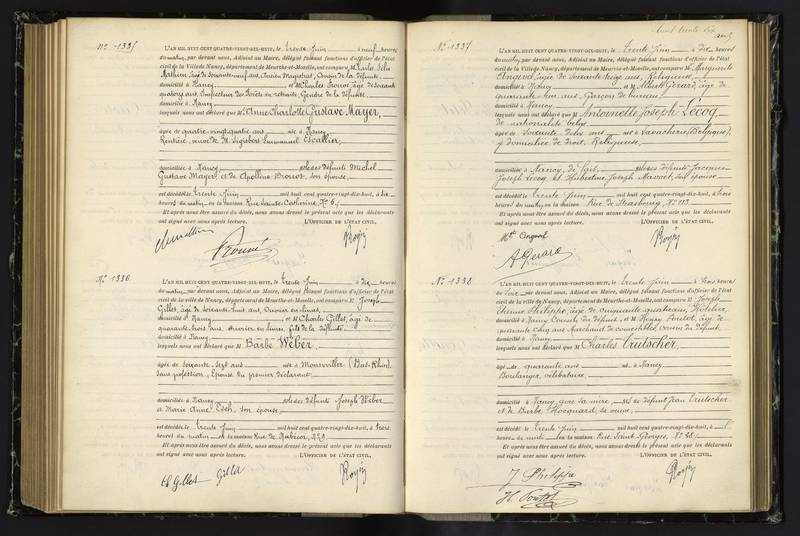 N° 1335
L'AN MIL HUIT CENT QUATRE-VINGT-DIX-HUIT, le trente Juin à neuf heures
du matin, par devant nous, Adjoint au Maire, délégué faisant fonctions d'officier de l'état
civil de la Ville de Nancy, département de Meurthe-et-Moselle, ont comparu M. Charles Félix
Mathieu, âgé de soixante-neuf ans, Ancien Magistrat, Cousin de la défunte
domicilié à Nancy et M. Charles âgé de soixante
ans, Inspecteur des forêts en retraite, Gendre de la défunte
domicilié à Nancy
lesquels nous ont déclaré que M. Anne Charlotte Gustave Mayer,
âgée de quatre-vingt-quatre ans née à Nancy
Rentière, veuve de M. Sigisbert Emmanuel Escallier,
domiciliée à Nancy des défunts Michel
Gustave Mayer et de Apolline Drouot, son épouse,
est décédée le trente Juin mil huit cent quatre-vingt-dix-huit, à six
heures du matin, en la maison Rue Sainte Catherine, N° 6,
Et après nous être assuré du décès, nous avons dressé le présent acte que les déclarants
ont signé avec nous après lecture. L'OFFICIER DE L'ÉTAT CIVIL,
N° 1336
L'AN MIL HUIT CENT QUATRE-VINGT-DIX-HUIT, le trente Juin à dix heures
du matin, par devant nous, Adjoint au Maire, délégué faisant fonctions d'officier de l'état
civil de la ville de Nancy, département de Meurthe-et-Moselle, ont comparu M. Joseph
Gillet, âgé de soixante huit ans, Ouvrier en limes,
domicilié à Nancy et M. Charles Gillet, âgé de
quarante trois ans, ouvrier en limes, fils de la défunte
domicilié à Nancy
lesquels nous ont déclaré que M. Barbe Weber,
âgée de soixante sept ans née à Monswiller (Bas-Rhin),
sans profession, Épouse du premier déclarant
domiciliée à Nancy des défunts Joseph Weber
et Marie Anne Esch, son épouse,
est décédée le trente Juin mil huit cent quatre-vingt-dix-huit, à trois
heures du matin en la maison Rue de
Et après nous être assuré du décès, nous avons dressé le présent acte que les déclarants
ont signé avec nous après lecture. L'OFFICIER DE L'ÉTAT CIVIL,
Ch Gillet Gillet
cent trente six
N° 1337
L'AN MIL HUIT CENT QUATRE-VINGT-DIX-HUIT, le trente Juin à dix heures
du matin, par devant nous, Adjoint au Maire, délégué faisant fonctions d'officier de l'état
civil de la Ville de Nancy, département de Meurthe-et-Moselle, ont comparu M. Marguerite
âgée de soixante treize ans, Religieuse,
domiciliée à Nancy et M. Albert Gérard, âgé de
quarante trois ans, Garçon de bureau,
domicilié à Nancy
lesquels nous ont déclaré que M. Antoinette Joseph Lecoq,
de nationalité belge
âgée de soixante deux ans née à (Belgique),
y domiciliée de droit, Religieuse,
domiciliée à Nancy, de fait, des défunts Jacques
Joseph Lecoq et Hubertine Joseph son épouse,
est décédée le trente Juin mil huit cent quatre-vingt-dix-huit, à trois
heures du matin en la maison Rue de Strasbourg, N° 113
Et après nous être assuré du décès, nous avons dressé le présent acte que les déclarants
ont signé avec nous après lecture. L'OFFICIER DE L'ÉTAT CIVIL,
A Gérard
N° 1338
L'AN MIL HUIT CENT QUATRE-VINGT-DIX-HUIT, le trente Juin à trois heures
du soir, par devant nous, Adjoint au Maire, délégué faisant fonctions d'officier de l'état
civil de la ville de Nancy, département de Meurthe-et-Moselle, ont comparu M. Joseph
Philippe, âgé de cinquante quatre ans, Hôtelier,
domicilié à Nancy, Cousin du défunt, et M. Henry Poutot, âgé de
quarante cinq ans, Marchand de comestibles, voisin du défunt,
domicilié à Nancy
lesquels nous ont déclaré que M. Charles Crutscher,
âgé de quarante ans né à Nancy
Boulanger, célibataire,
domicilié à Nancy, avec sa mère, fils de défunt Jean Crutscher
et de Barbe Hocquard, sa veuve,
est décédé le trente Juin mil huit cent quatre-vingt-dix-huit, à
heures de midi en la maison Rue Saint Georges, N° 46,
Et après nous être assuré du décès, nous avons dressé le présent acte que les déclarants
ont signé avec nous après lecture. L'OFFICIER DE L'ÉTAT CIVIL,
J Philippe
H. Poutot